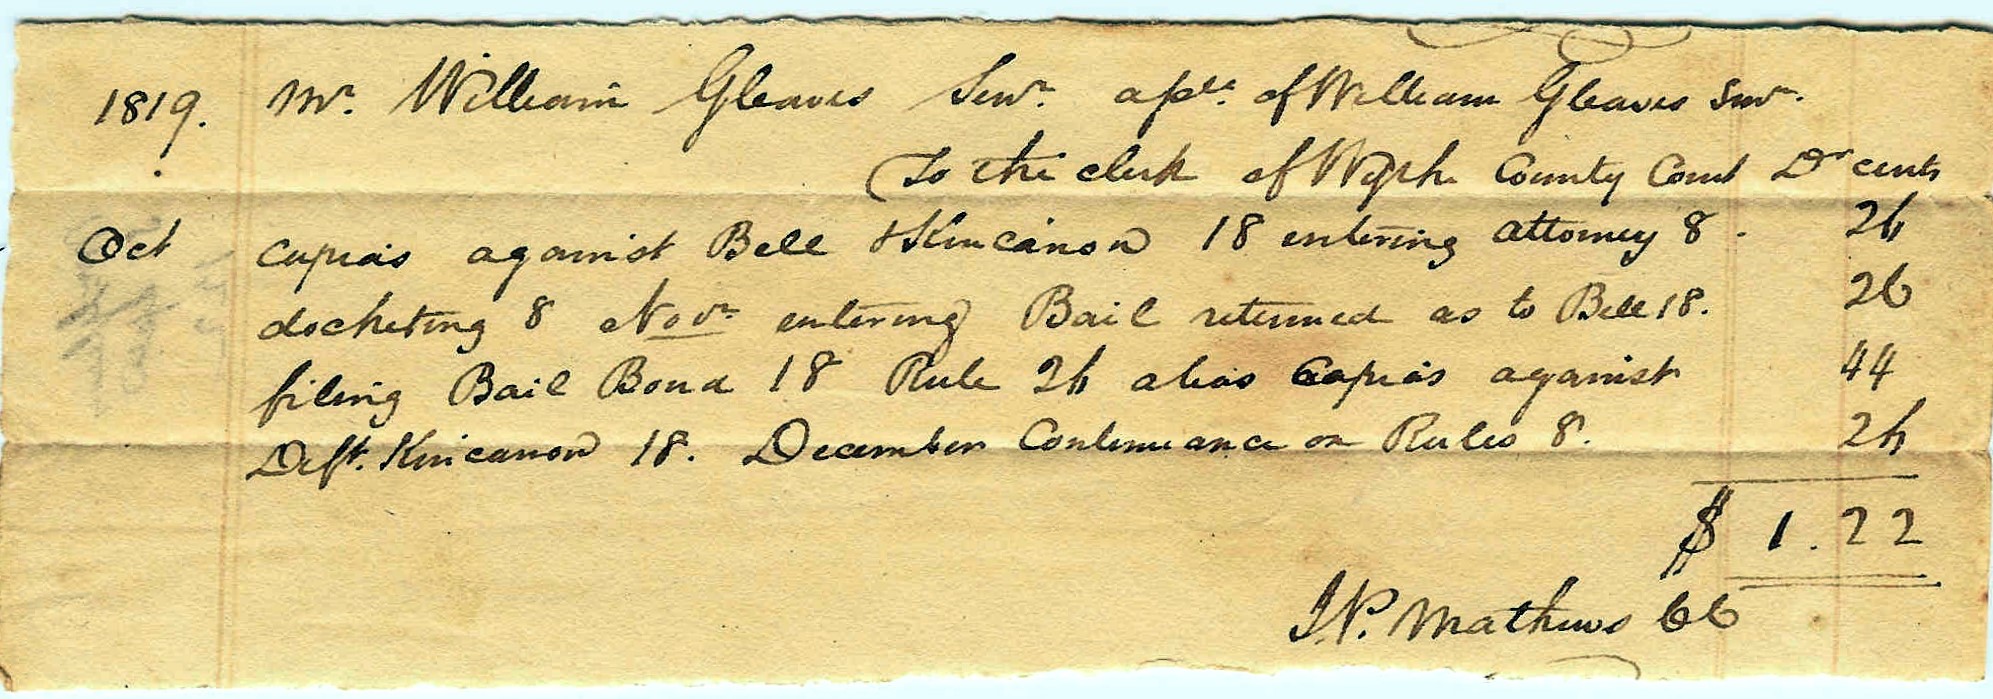 1819. Mr. William Gleaves Senr. of William Gleaves
To the clerk of Wythe County Court Dr cents
Oct capias against Bell & Kincanon 18 entering attorney 8. 26
docketing 8 Novr. entering Bail returned as to Bell 18. 26
filing Bail Bond 18 Rule 26 alias Capias against 44
Deft. Kincanon 18. December Continuance on Rules 8. 26
$ 1.22
J.P. Mathews CC